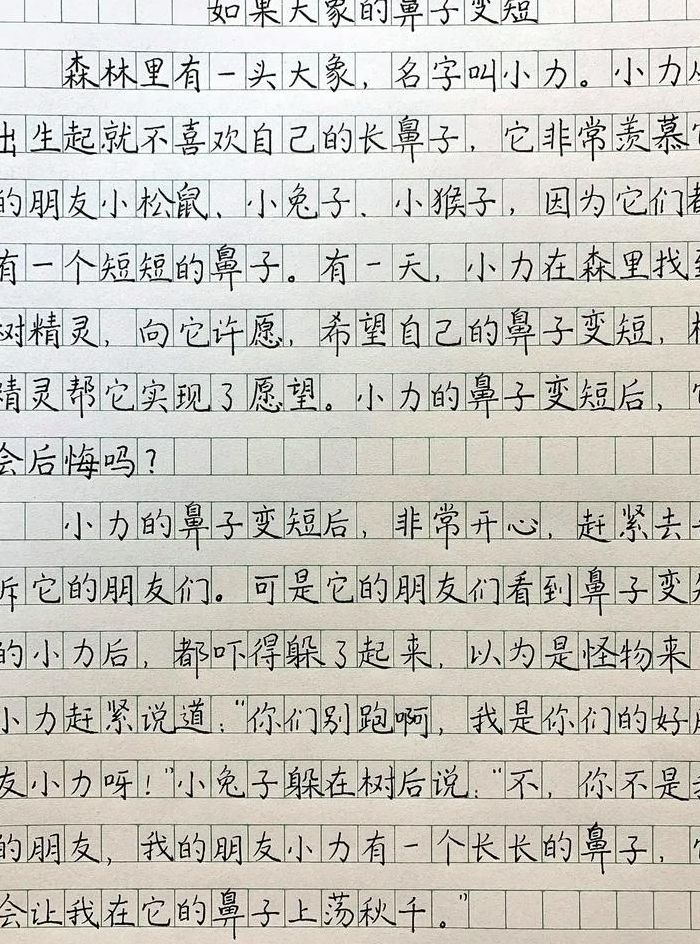 如果大象的鼻子变短
森林里有一头大象，名字叫小力。小力从
出生起就不喜欢自己的长鼻子，它非常羡慕它
的朋友小松鼠、小兔子、小猴子，因为它们都
有一个短短的鼻子。有一天，小力在森里找到
树精灵，向它许愿，希望自己的鼻子变短，树
精灵帮它实现了愿望。小力的鼻子变短后，它
会后悔吗？
小力的鼻子变短后，非常开心，赶紧去告
诉它的朋友们。可是它的朋友们看到鼻子变短
的小力后，都吓得躲了起来，以为是怪物来
小力赶紧说道：“你们别跑啊，我是你们的好朋
友小力呀！”小兔子躲在树后说：“不，你不是我
的朋友，我的朋友小力有一个长长的鼻子，它
会让我在它的鼻子上荡秋千。”